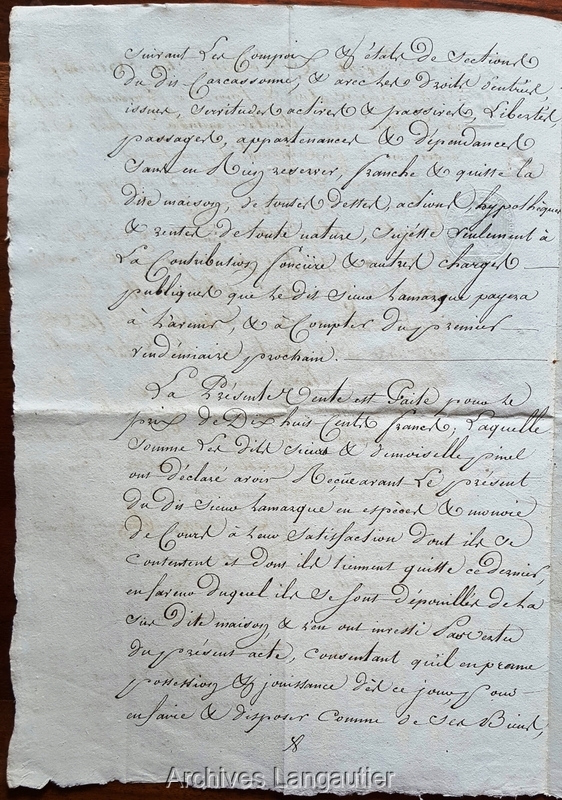 suivant Les Compoix & états de Sections
du dit Carcassonne, & avec ses Droits d'entrées
issues, servitudes actives & passives, Libertés,
passages, appartenances & dépendances
sans en Rien reserver, franche & quitte la
dite maison, de toutes dettes, actions, hypothèques
& rentes de toute nature, sujétte seulement à
La Contribution foncière & autres charges
publiques que le dit sieur Lamarque payera
à L'avenir, & à Compter du premier
vendémiaire prochain.
La Présente Vente est Faite pour le
prix de Dix huit Cents francs, Laquelle
somme Les dits sieur & demoiselle pinel
ont déclaré avoir Reçue avant Le présent
du dit sieur Lamarque en espèces & monoie
de Cours à Leur Satisfaction dont ils se
contentent et dont ils tiennent quitte ce dernier,
en faveur duquel ils se sont dépouillés de La
sus dite maison & L'en ont investi Par vertu
du présent acte, consentant qu'il en prenne
possession & jouissance dès ce jour, pour
en faire & disposer comme de ses Biens,
Archives Langautier